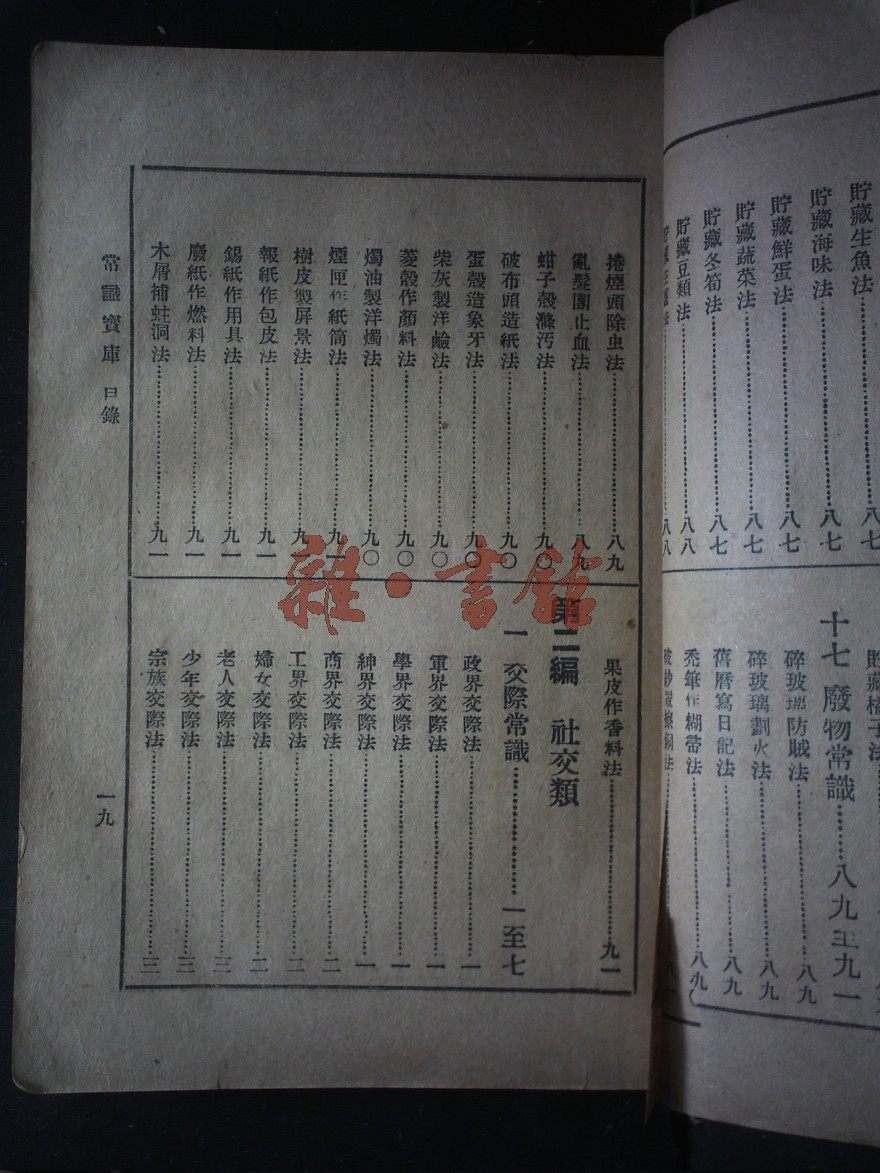 貯藏生魚法……八七
貯藏海味法……八七
貯藏鮮蛋法……八七
貯藏蔬菜法……八七
貯藏冬筍法……八七
貯藏豆類法……八八
八八
貯藏橘子法
十七 廢物常識……八九至九一
碎玻璃防賊法……八九
碎玻璃劃火法……八九
舊曆寫日記法……八九
禿筆作糊帚法……八九
捲煙頭除虫法……八九
亂髮團止血法……八九
蚶子殼滌汚法……九〇
破布頭造紙法……九〇
蛋殼造象牙法……九〇
柴灰製洋鹼法……九〇
菱殼作顏料法……九〇
燭油製洋燭法……九〇
煙匣作紙筒法……九一
樹皮製屏景法……九一
報紙作包皮法……九一
錫紙作用具法……九一
廢紙作燃料法……九一
木屑補蛀洞法……九一
果皮作香料法……九一
第二編 社交類
一 交際常識……一至七
政界交際法……一
軍界交際法……一
學界交際法……一
紳界交際法……一
商界交際法……二
工界交際法……二
婦女交際法……二
老人交際法……三
少年交際法……三
宗族交際法……三
常識寶庫 目錄
一九
雜·書館